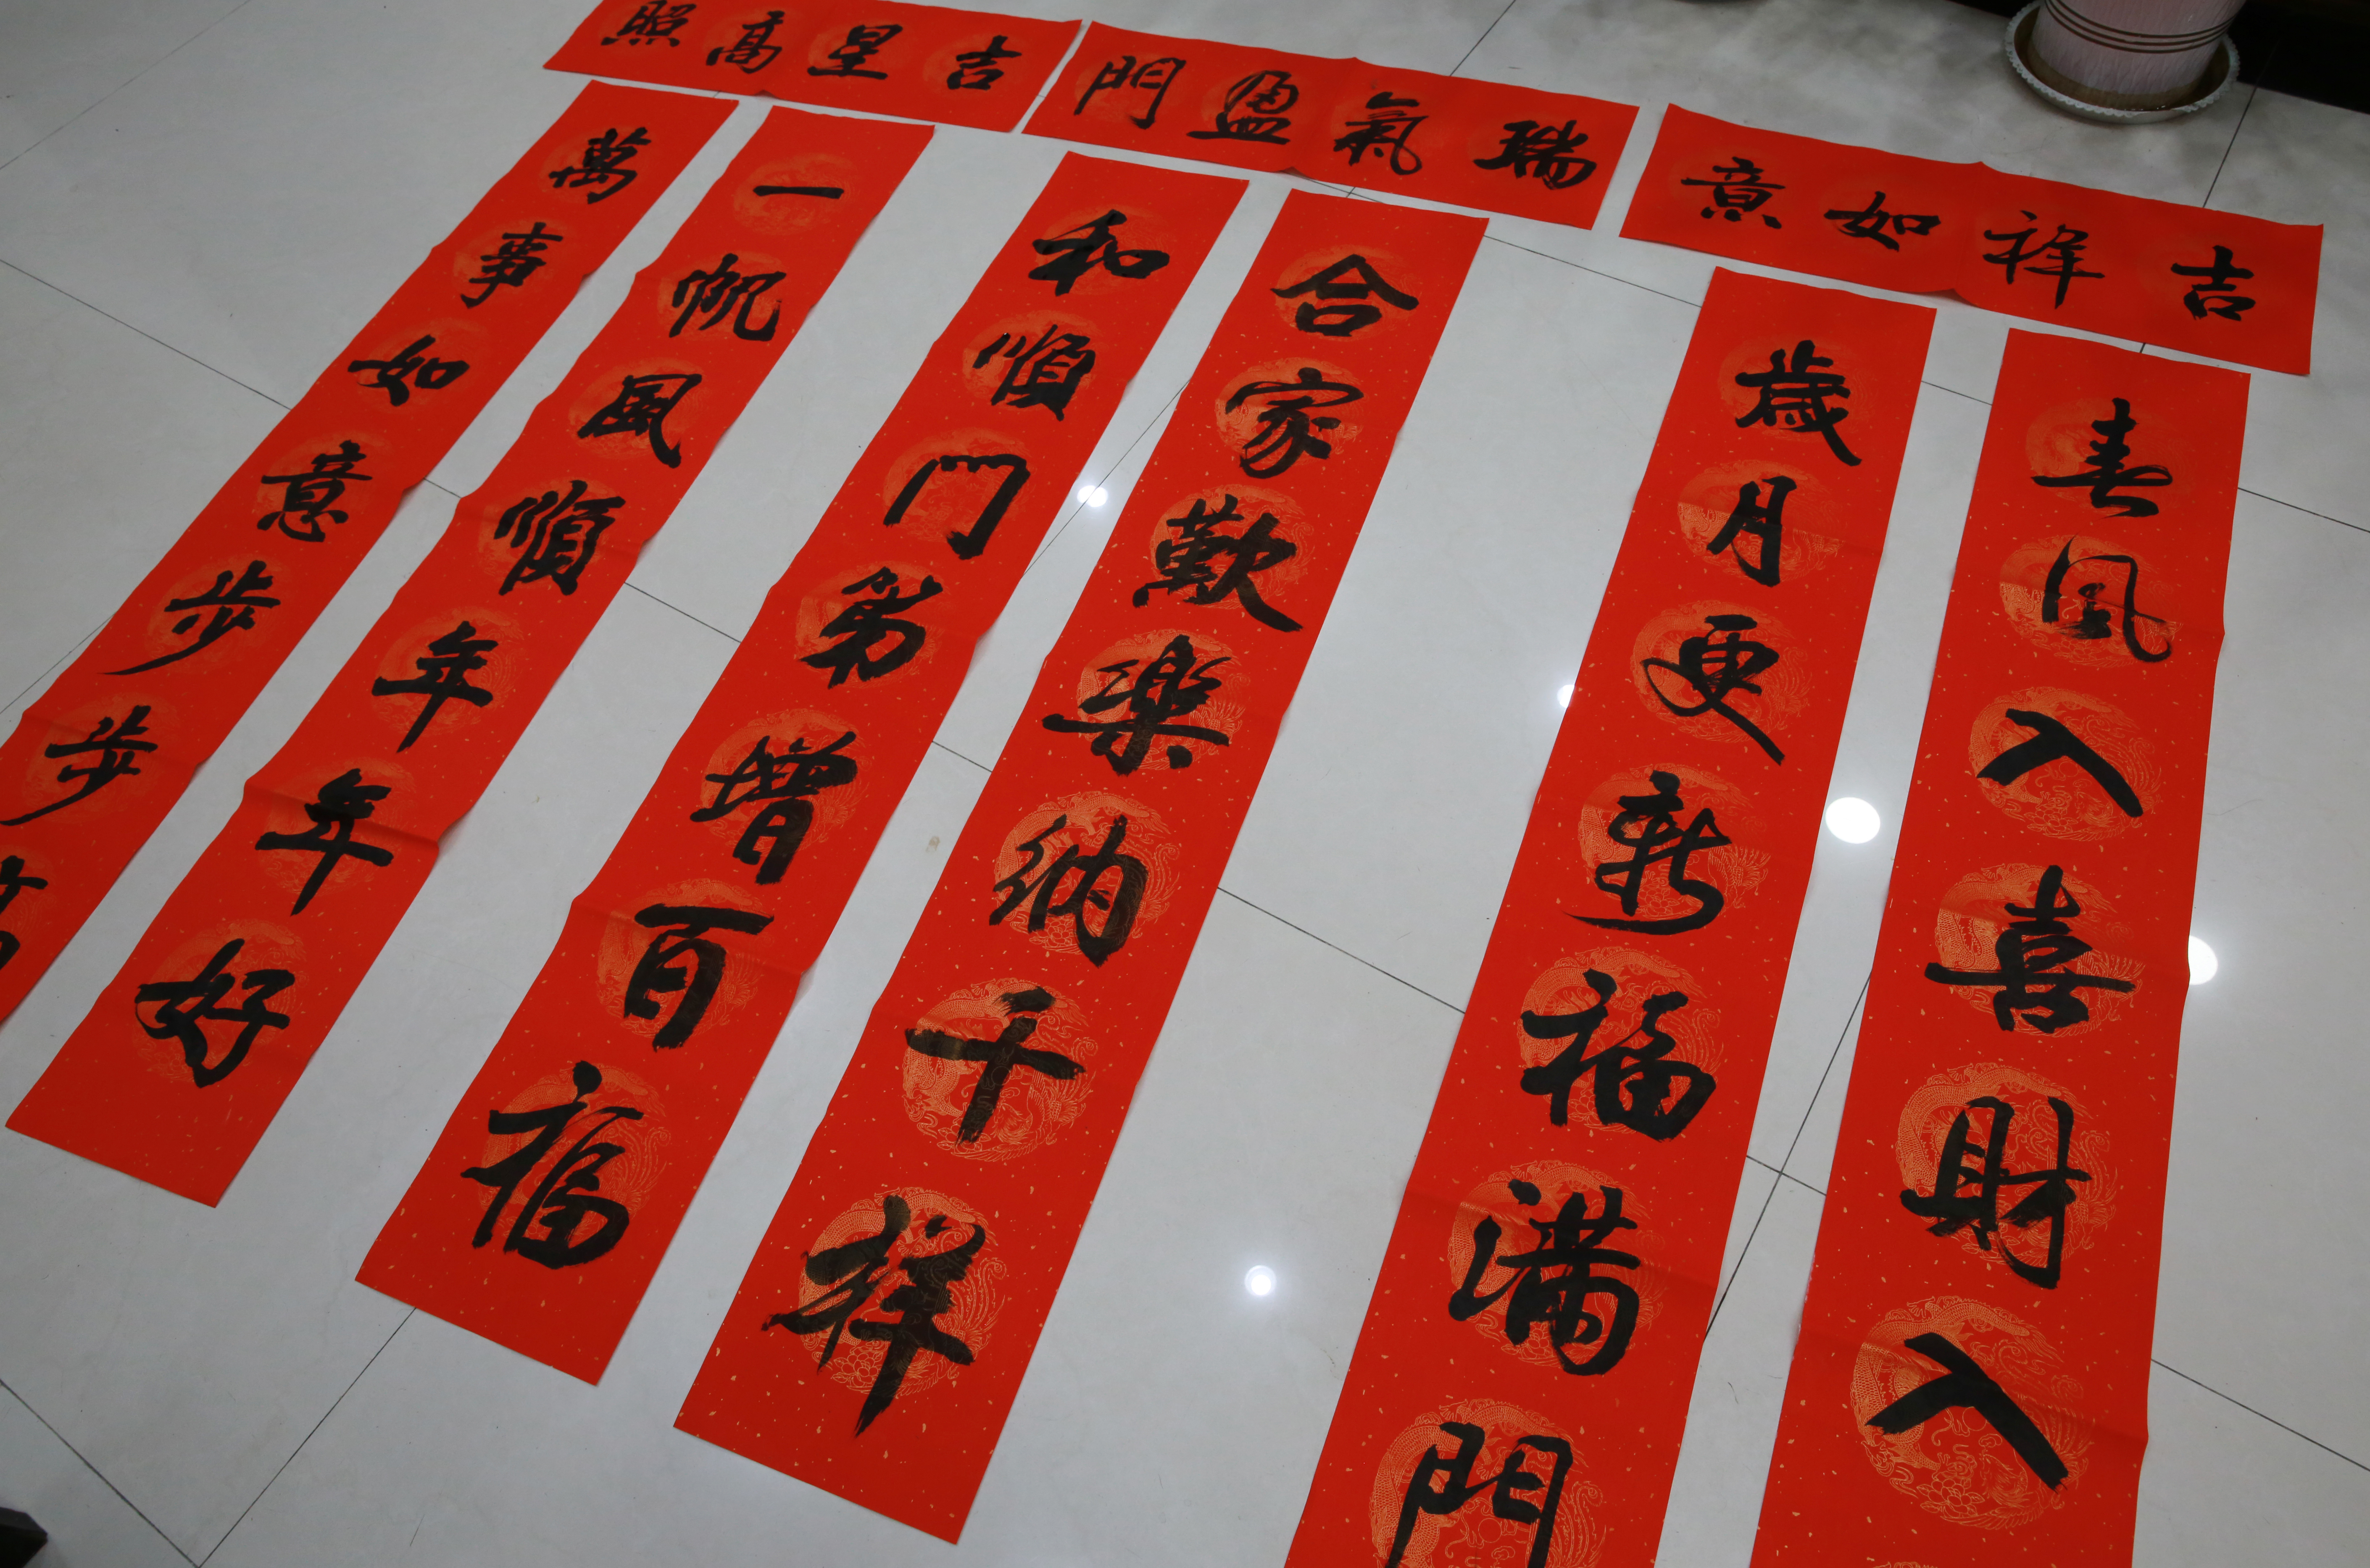 吉祥如意
春風入喜財入
歲月更新福滿門
瑞氣盈門
合家歡樂納千祥
和順門第增百福
吉星高照
一帆風順年年好
萬事如意步步